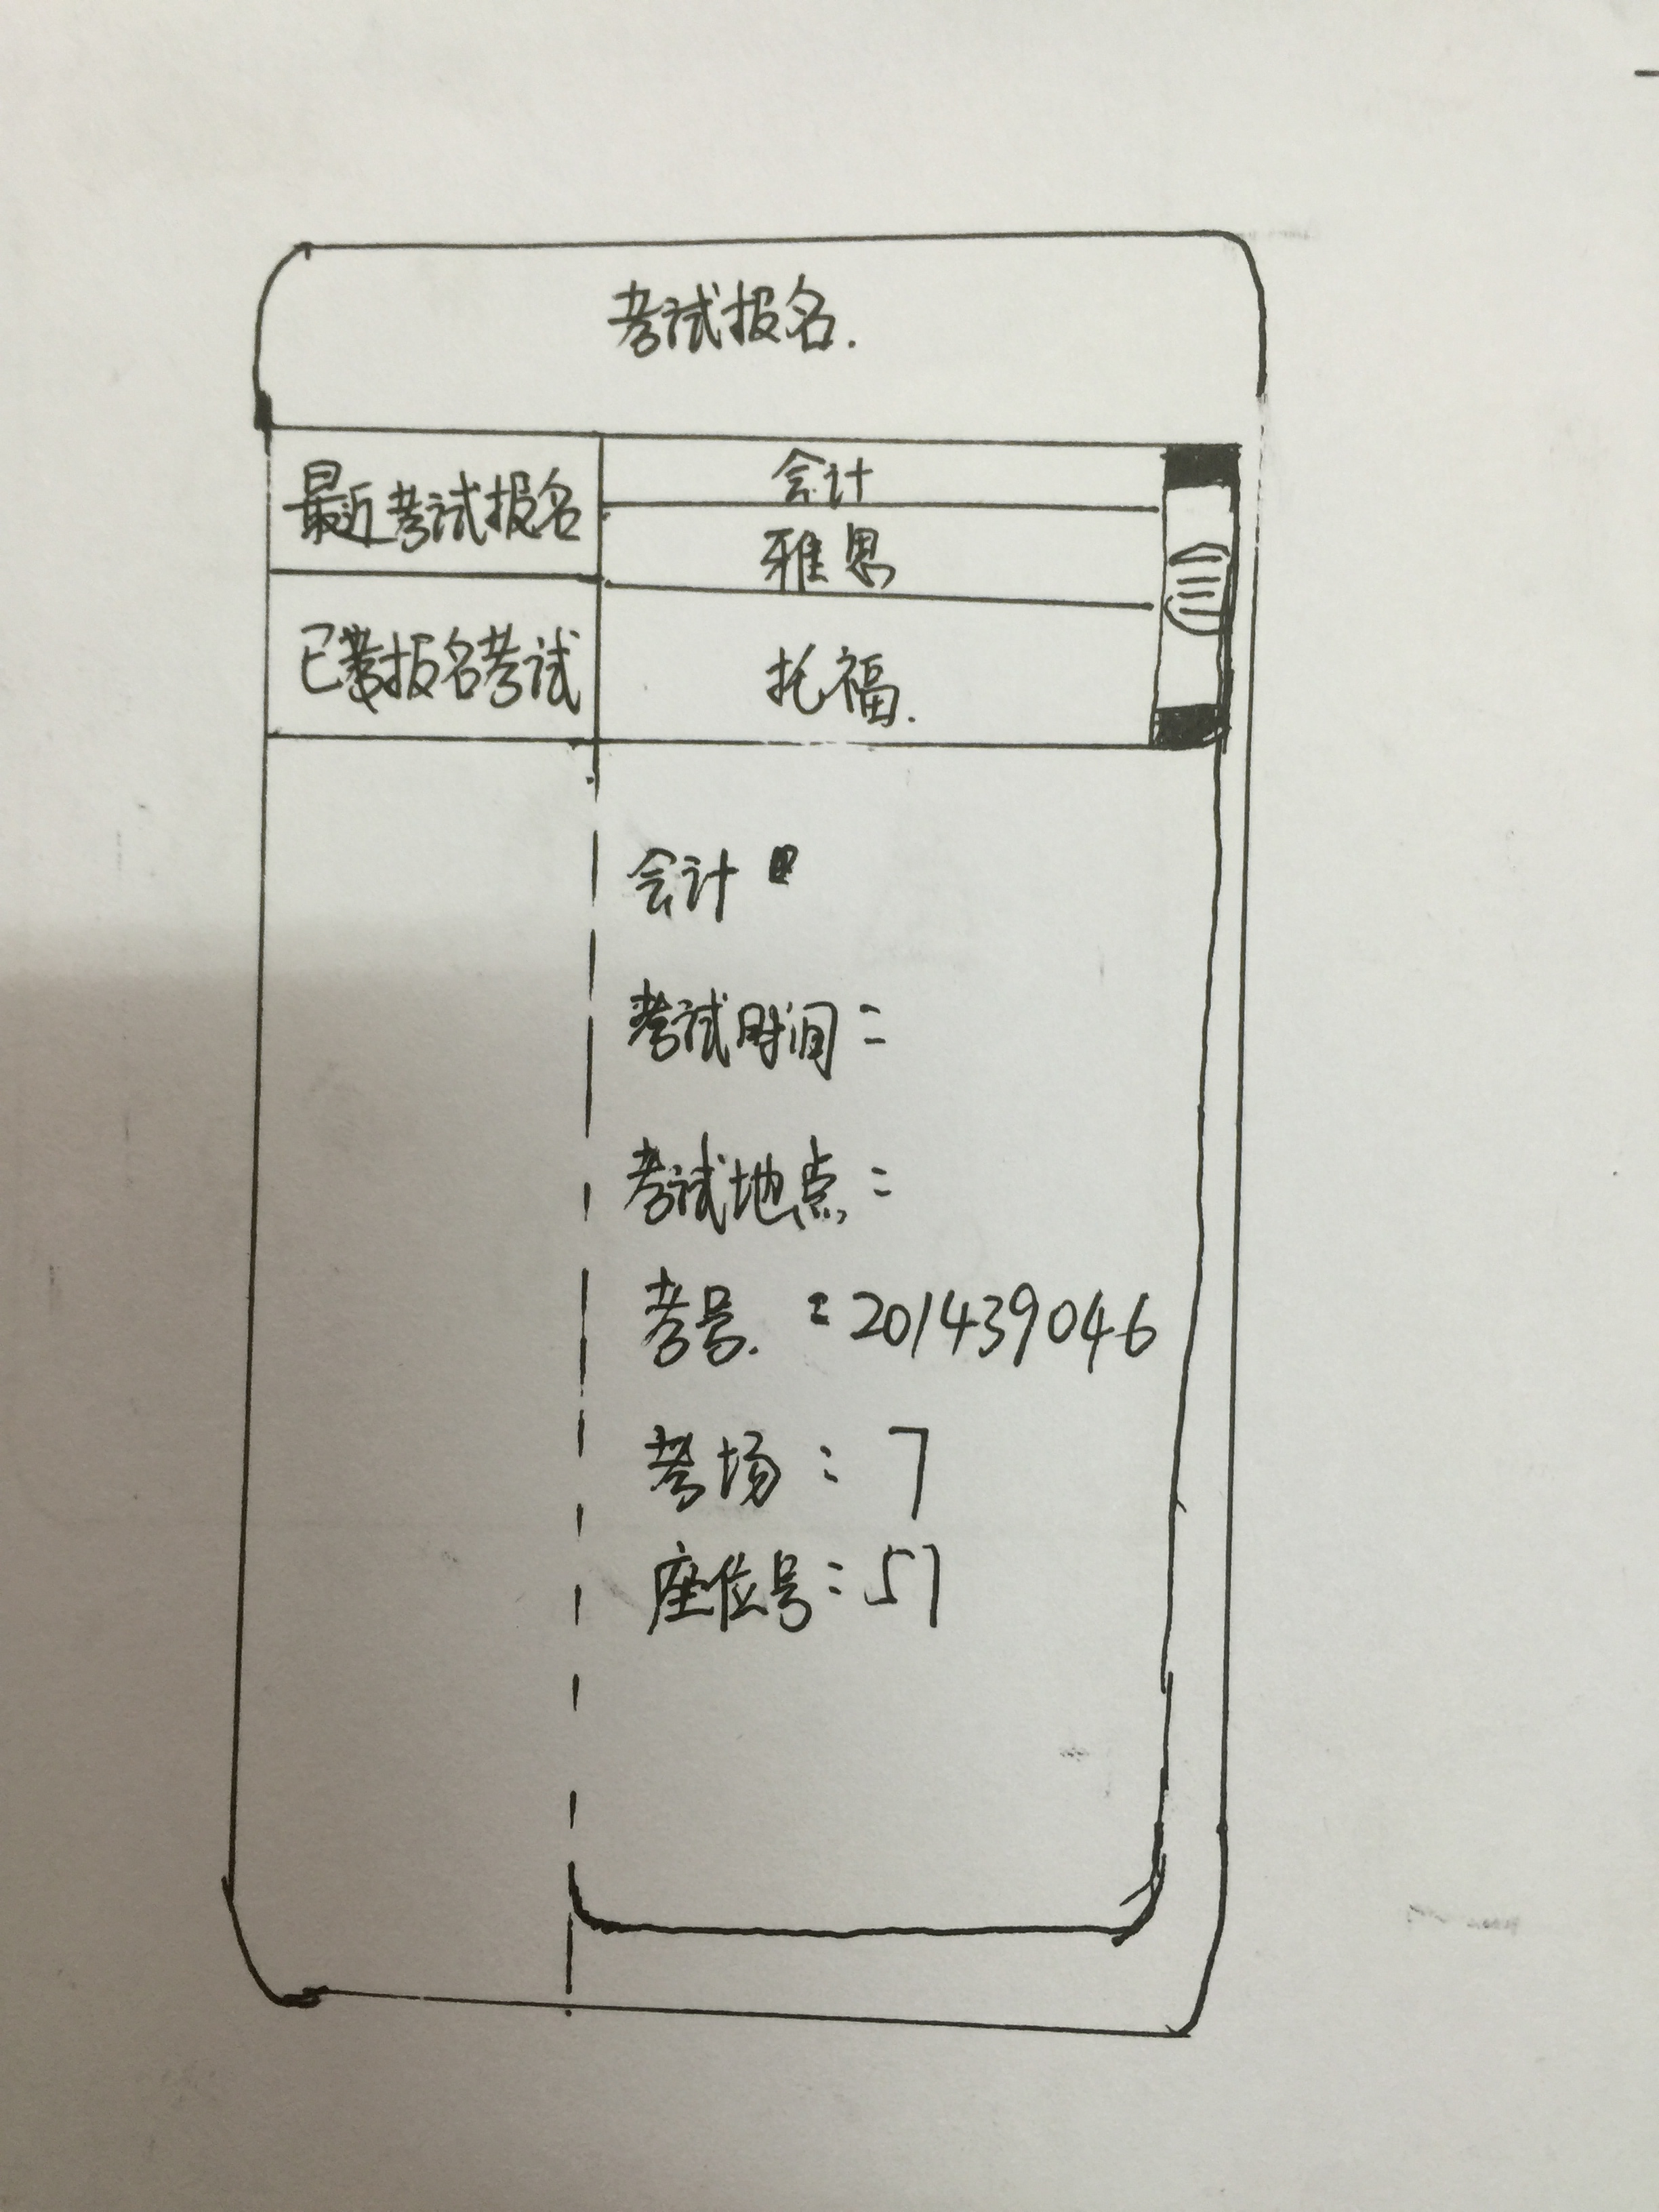 考试报名.
最近考试报名
会计
雅思
已报名考试
托福.
会计
考试时间:
考试地点:
考号. :201439046
考场: 7
座位号:57